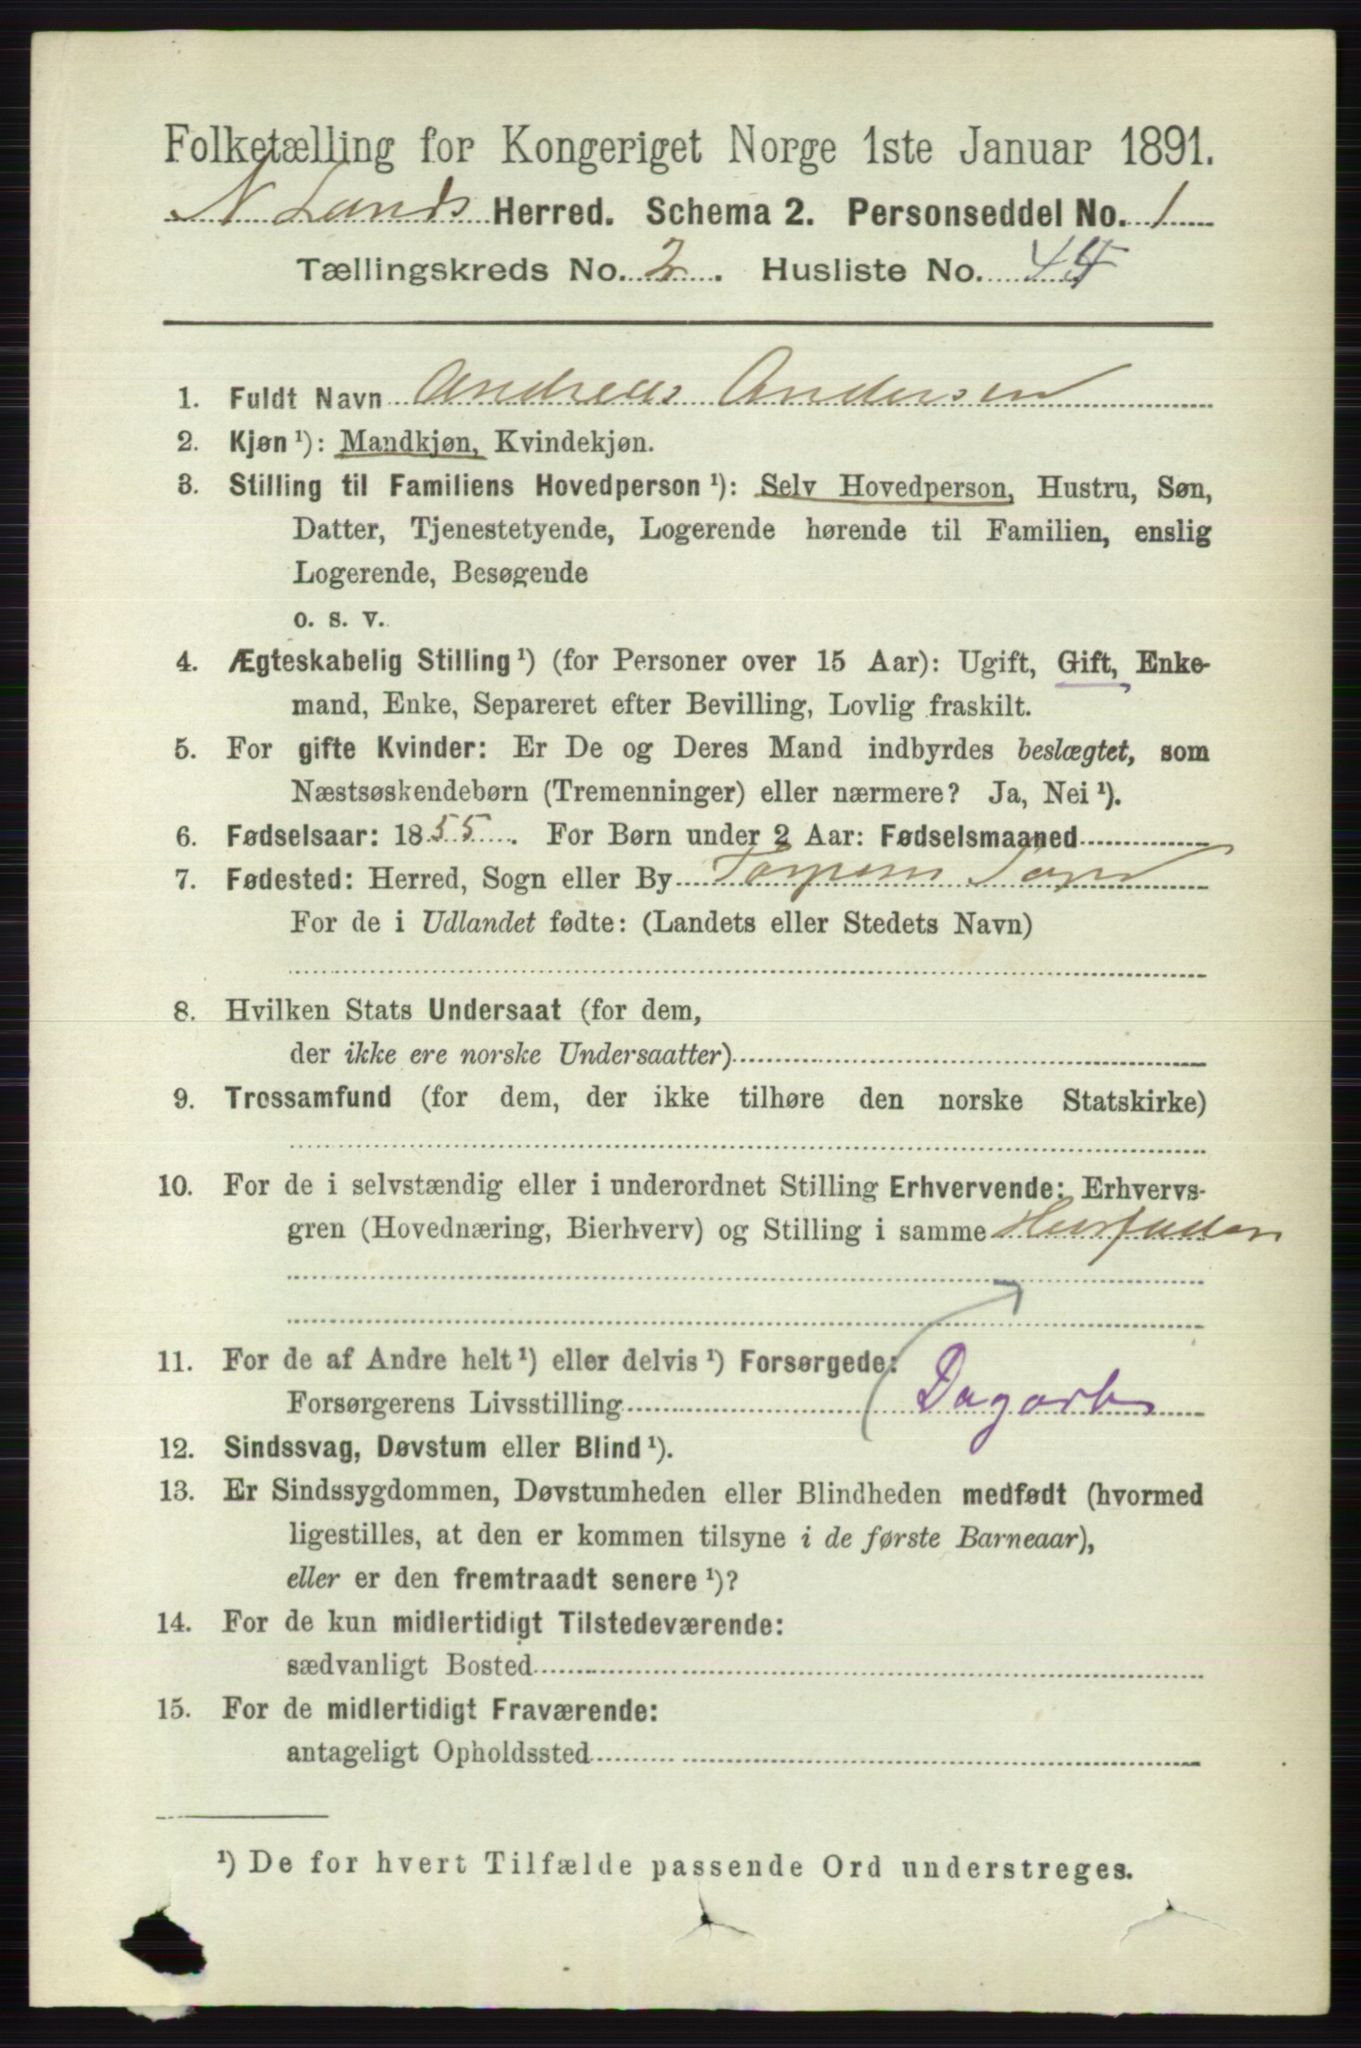 Folketælling for Kongeriget Norge 1ste Januar 1891.
N Lands Herred. Schema 2. Personseddel No. 1
Tællingskreds No. 2. Husliste No. 44
1. Fuldt Navn Andreas Andersen
2. Kjøn¹): Mandkjøn, Kvindekjøn.
3. Stilling til Familiens Hovedperson¹): Selv Hovedperson, Hustru, Søn,
Datter, Tjenestetyende, Logerende hørende til Familien, enslig
Logerende, Besøgende
o. s. v.
4. Ægteskabelig Stilling¹) (for Personer over 15 Aar): Ugift, Gift, Enke-
mand, Enke, Separeret efter Bevilling, Lovlig fraskilt.
5. For gifte Kvinder: Er De og Deres Mand indbyrdes beslægtet, som
Næstsøskendebørn (Tremenninger) eller nærmere? Ja, Nei¹).
6. Fødselsaar: 1855. For Børn under 2 Aar: Fødselsmaaned
7. Fødested: Herred, Sogn eller By Torpens Sogn
For de i Udlandet fødte: (Landets eller Stedets Navn)
8. Hvilken Stats Undersaat (for dem,
der ikke ere norske Undersaatter)
9. Trossamfund (for dem, der ikke tilhøre den norske Statskirke)
10. For de i selvstændig eller i underordnet Stilling Erhvervende: Erhvervs-
gren (Hovednæring, Bierhverv) og Stilling i samme Husfader
11. For de af Andre helt¹) eller delvis¹) Forsørgede:
Forsørgerens Livsstilling Dagarb
12. Sindssvag, Døvstum eller Blind¹).
13. Er Sindssygdommen, Døvstumheden eller Blindheden medfødt (hvormed
ligestilles, at den er kommen tilsyne i de første Barneaar),
eller er den fremtraadt senere¹)?
14. For de kun midlertidigt Tilstedeværende:
sædvanligt Bosted
15. For de midlertidigt Fraværende:
antageligt Opholdssted
¹) De for hvert Tilfælde passende Ord understreges.